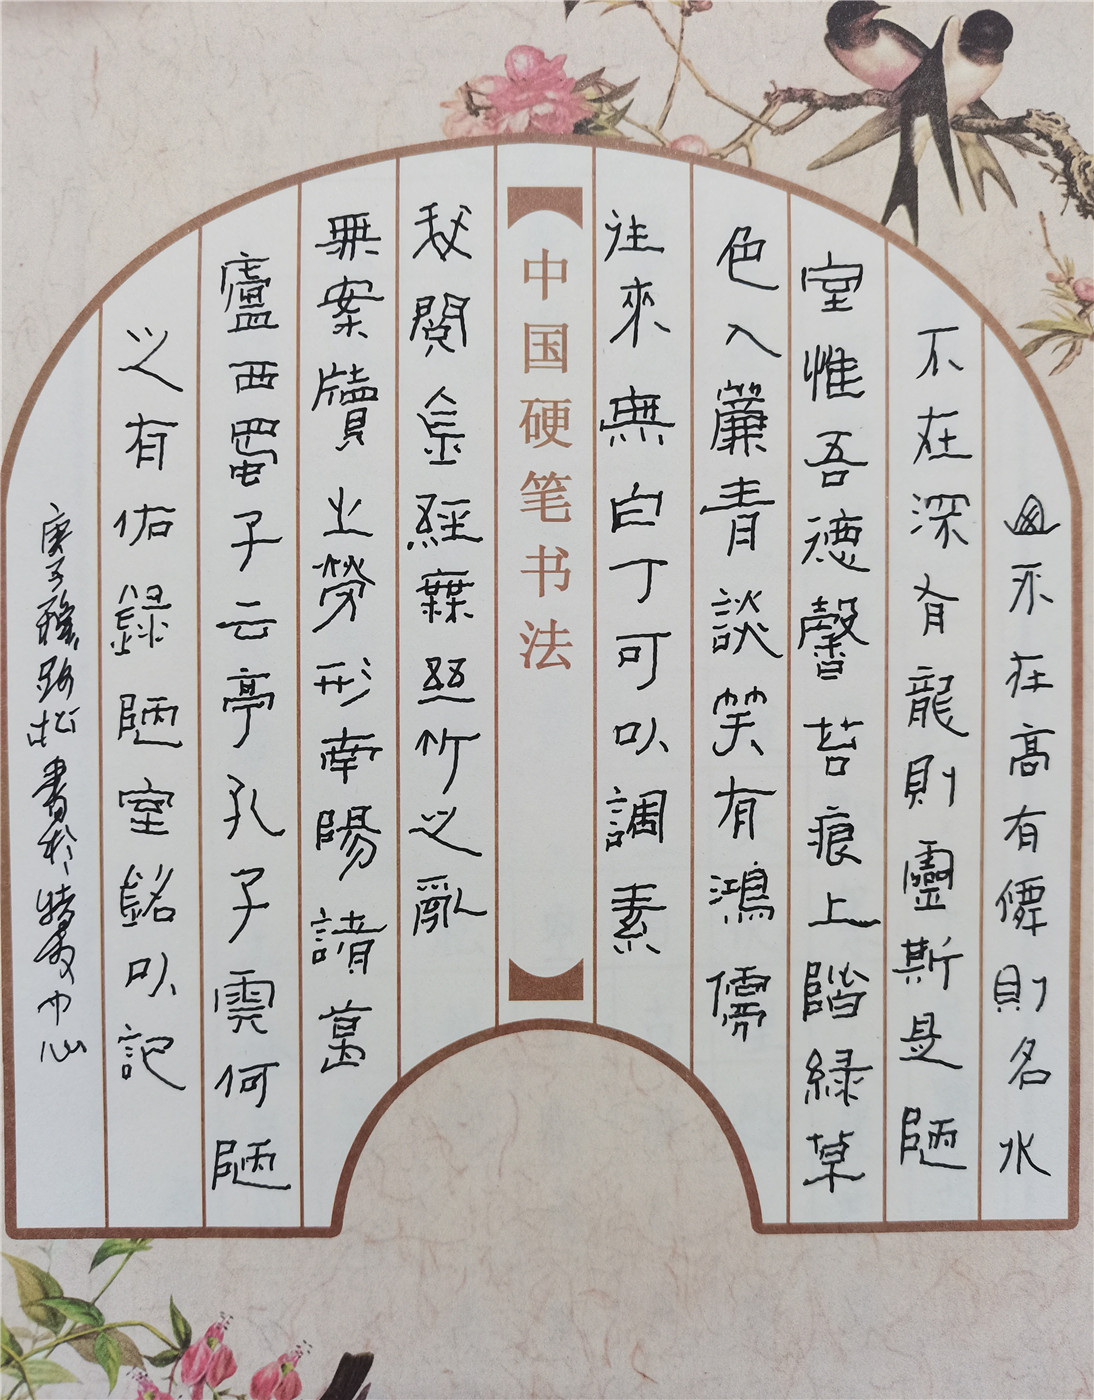 山不在高有僊則名水
不在深有龍則靈斯是陋
室惟吾德馨苔痕上階緑草
色入簾青談笑有鴻儒
往來無白丁可以調素
中国硬笔书法
閱金經無絲竹之亂
無案牘之勞形南陽諸葛
廬西蜀子云亭孔子雲何陋
之有佑録陋室銘以記
庚子路松書於中心